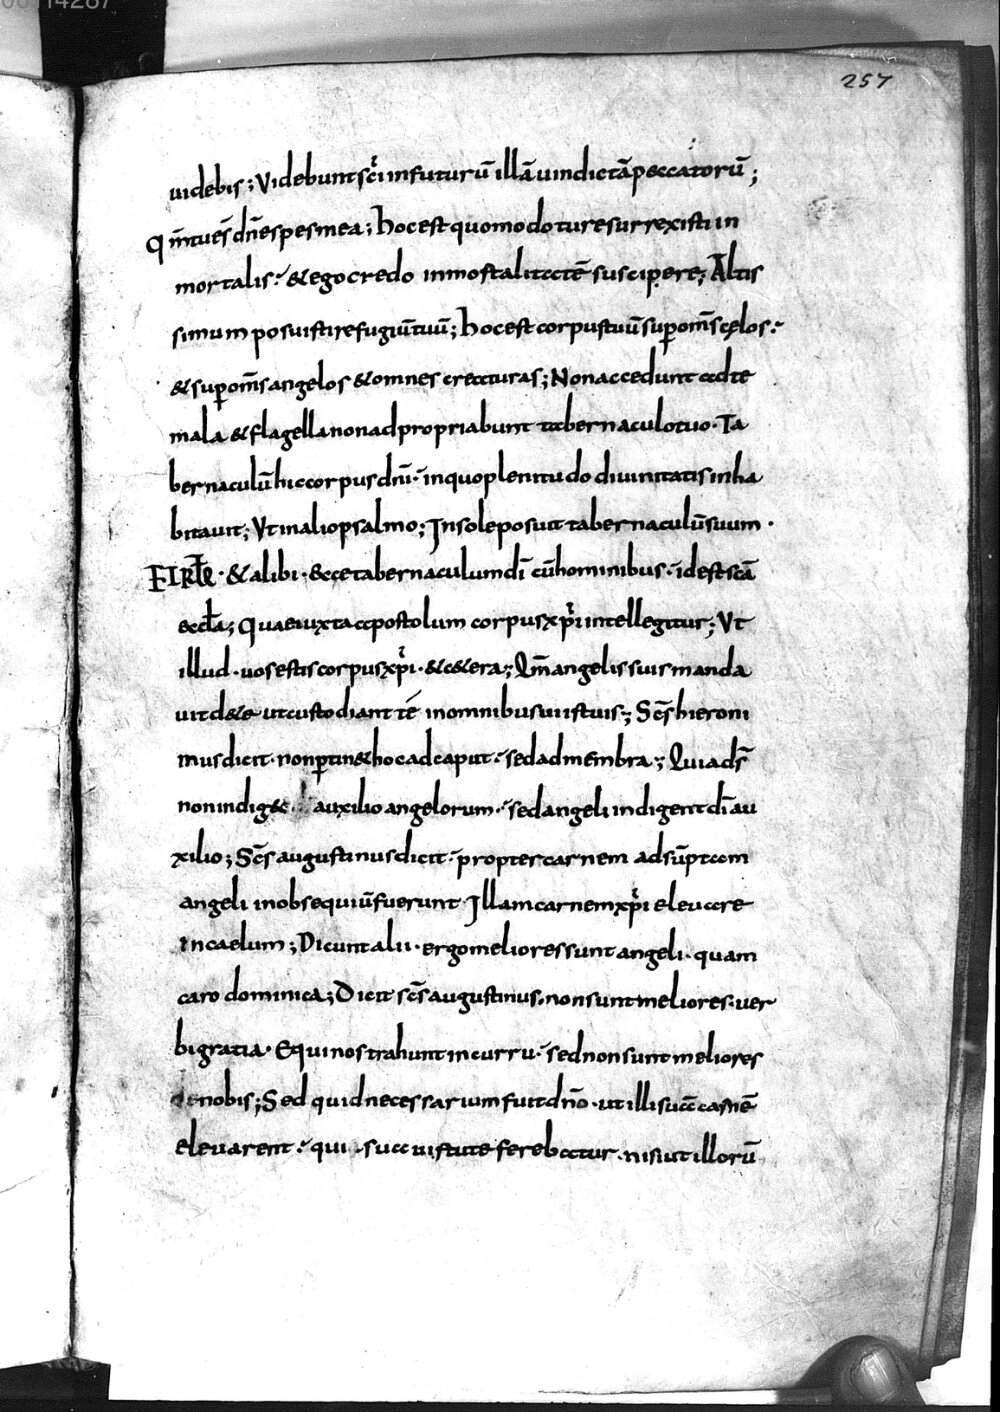 257
uidebis; Videbunt sc̄i in futurū illā uindictā peccatorū;
Qm̄ tu es̄ dn̄e spes mea; hoc est quomodo tu resurrexisti in
mortalis: & ego credo inmortalitatē suscipere; Altis
simum posuisti refugiū tuū; hoc est corpus tuū sup̄ om̄s cęlos:
& sup̄ om̄s angelos & omnes creaturas; Non accedunt ad te
mala & flagella non adpropriabunt tabernaculo tuo. Ta
bernaculū hic corpus dn̄i: in quo plenitudo diuinitatis inha
bitauit; Vt in alio psalmo; In sole posuit tabernaculū suum.
& alibi. & ecce tabernaculum dī cū hominibus: id est scā
eccła; Quae iuxta apostolum corpus xp̄i intellegitur; Vt
illud. uos estis corpus xp̄i. & c&era; Qm̄ angelis suis manda
uit de te ut custodiant te in omnibus uiis tuis; Sc̄s hieroni
mus dicit. non p̄tin& hoc ad caput: sed ad membra; Quia dn̄s
non indig& auxilio angelorum: sed angeli indigent dī au
xilio; Sc̄s augustinus dicit: propter carnem adsūptam
angeli in obsequiū fuerunt. Illam carnem xp̄i eleuare
in caelum; Dicunt alii. ergo meliores sunt angeli. quam
caro dominica; Dicit sc̄s augustinus. non sunt meliores. uer
bi gratia. Equi nos trahunt in curru: sed non sunt meliores
de nobis; Sed quid necessarium fuit dn̄o. ut illi suā carnē
eleuarent: qui sua uirtute ferebatur. nisi ut illorū